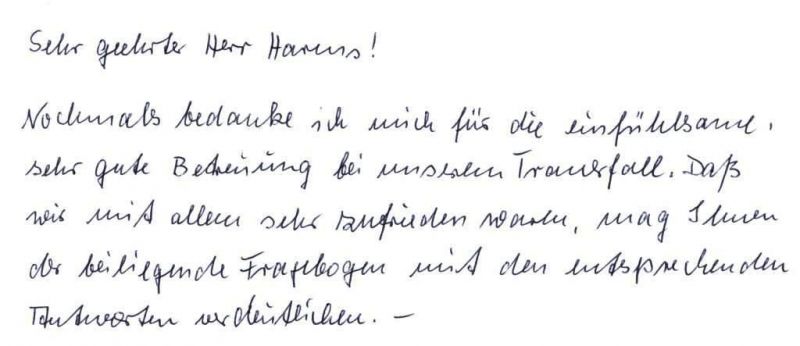 Sehr geehrter Herr Harms!
Nochmals bedanke ich mich für die einfühlsame,
sehr gute Betreuung bei unserem Trauerfall. Daß
wir mit allem sehr zufrieden waren, mag Ihnen
der beiliegende Fragebogen mit den entsprechenden
Antworten verdeutlichen. –